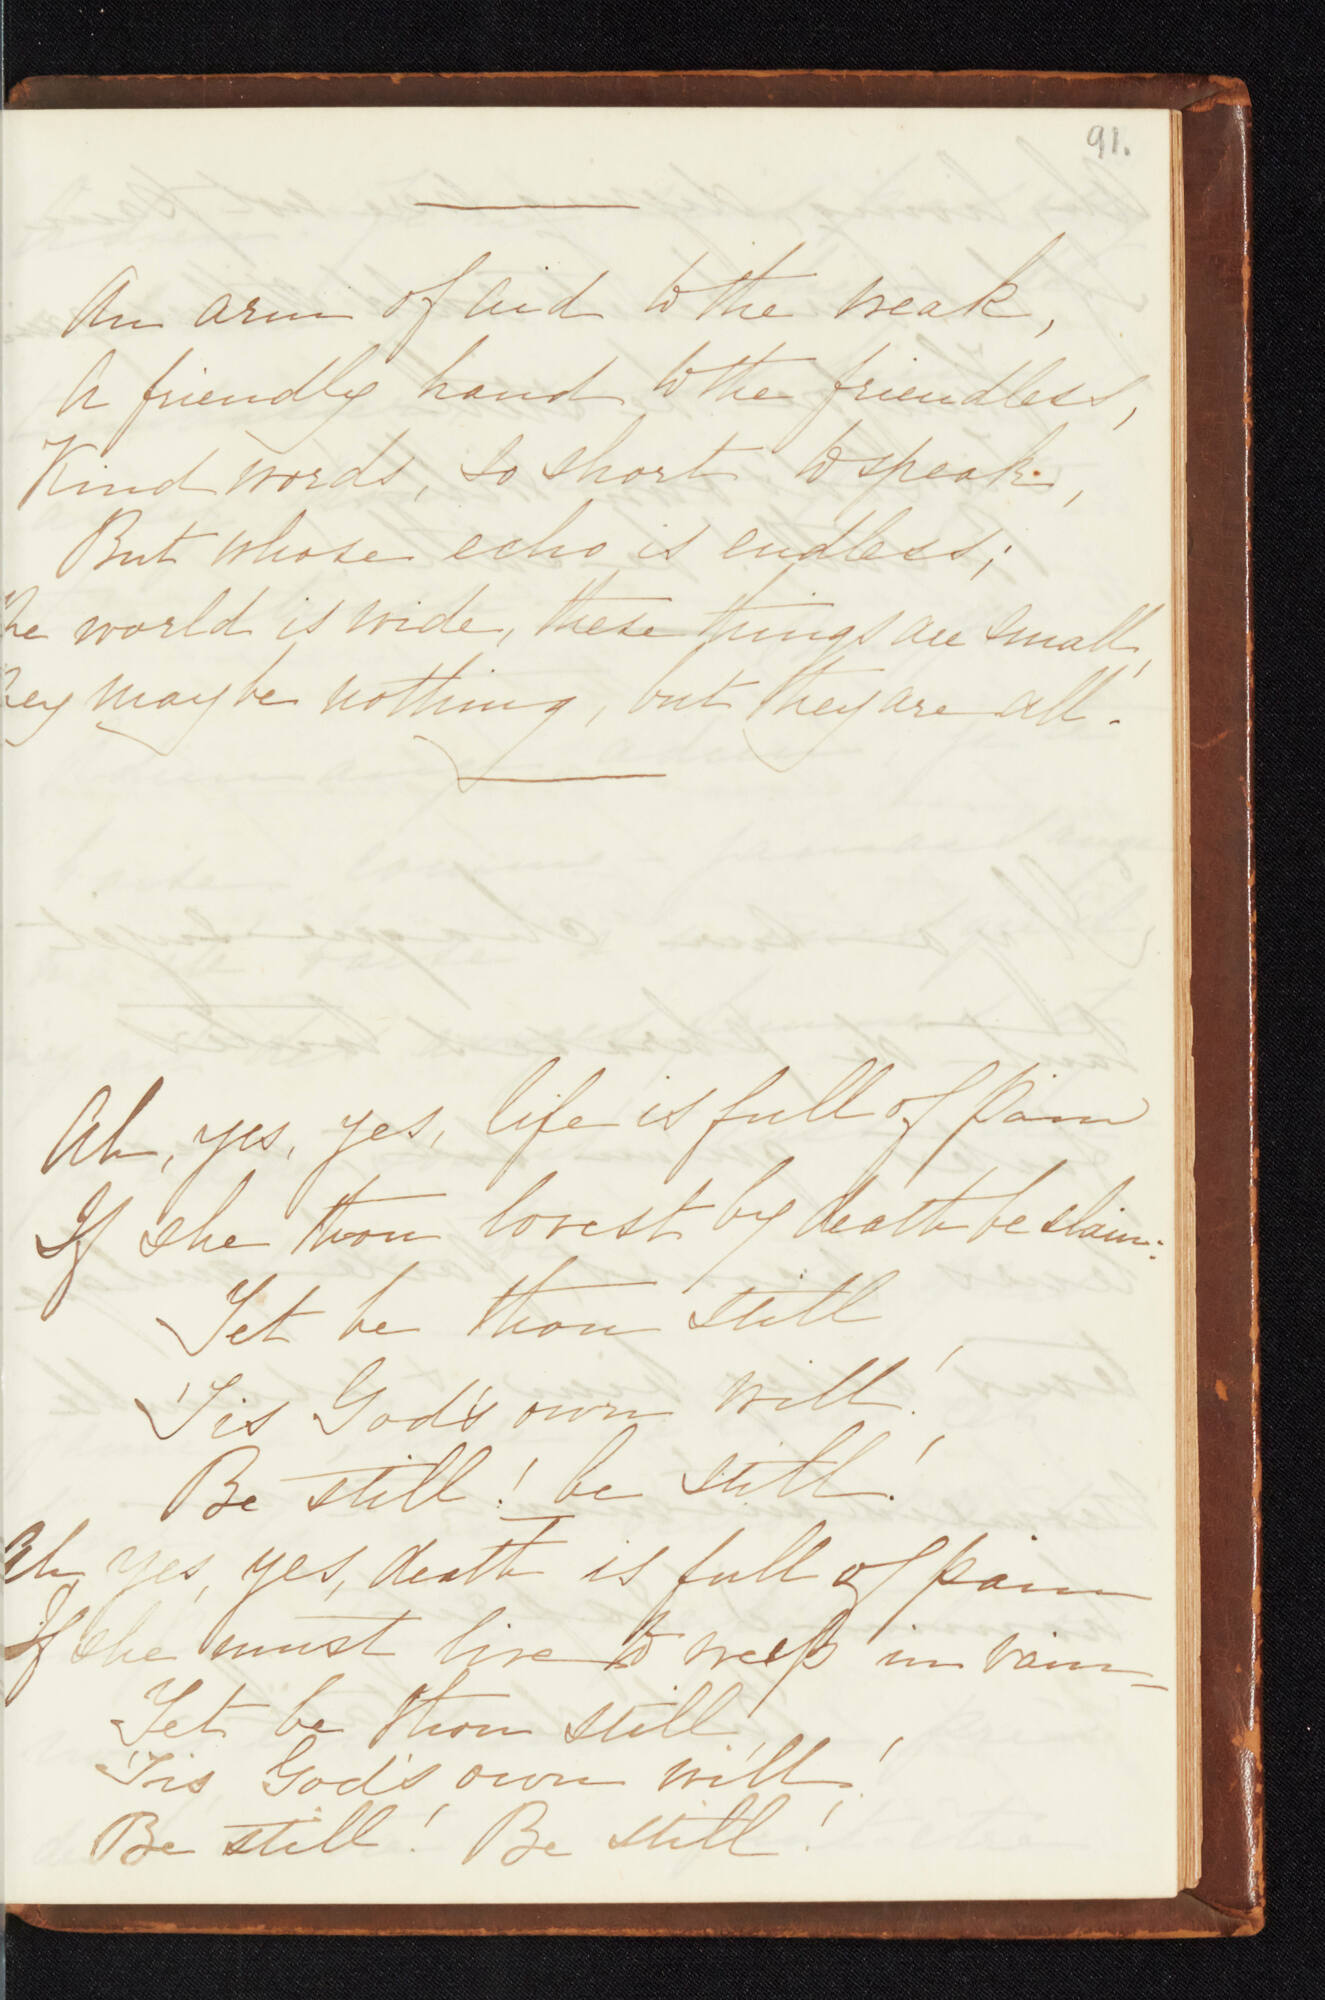 91.
An arm of aid to the weak,
A friendly hand to the friendless,
Kind words, so short to speak,
But whose echo is endless;
The world is wide, these things are small,
They may be nothing, but they are all.
Ah, yes, yes, life is full of pain
If she thou lovest by death be slain:
Yet be thou still
'Tis God's own will!
Be still! be still!
Ah yes, yes, death is full of pain
If she must live to weep in vain—
Yet be thou still,
'Tis God's own will!
Be still! Be still!